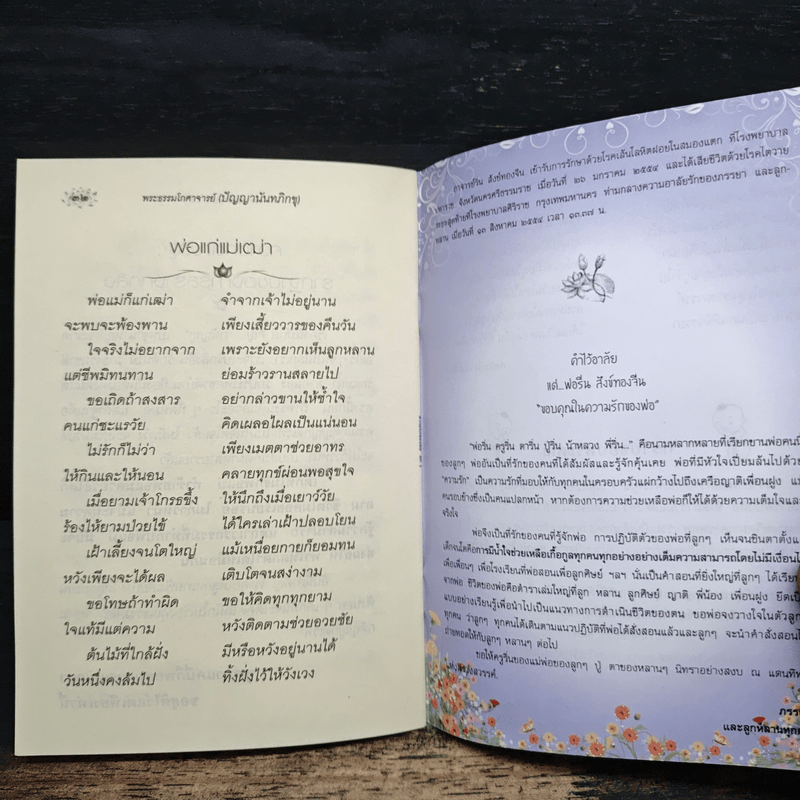 ๓๒
พระธรรมโกศาจารย์ (ปัญญานันทภิกขุ)
พ่อแก่แม่เฒ่า
พ่อแม่ก็แก่เฒ่า จำจากเจ้าไม่อยู่นาน
จะพบจะพ้องพาน เพียงเสี้ยววารของคืนวัน
ใจจริงไม่อยากจาก เพราะยังอยากเห็นลูกหลาน
แต่ชีพมิทนทาน ย่อมร้าวรานสลายไป
ขอเถิดถ้าสงสาร อย่ากล่าวขานให้ช้ำใจ
คนแก่ชะแรวัย คิดเผลอไผลเป็นแน่นอน
ไม่รักก็ไม่ว่า เพียงเมตตาช่วยอาทร
ให้กินและให้นอน คลายทุกข์ผ่อนพอสุขใจ
เมื่อยามเจ้าโกรธขึ้ง ให้นึกถึงเมื่อเยาว์วัย
ร้องไห้ยามป่วยไข้ ได้ใครเล่าเฝ้าปลอบโยน
เฝ้าเลี้ยงจนโตใหญ่ แม้เหนื่อยกายก็ยอมทน
หวังเพียงจะได้ผล เติบโตจนสง่างาม
ขอโทษถ้าทำผิด ขอให้คิดทุกทุกยาม
ใจแท้มีแต่ความ หวังติดตามช่วยอวยชัย
ต้นไม้ที่ใกล้ฝั่ง มีหรือหวังอยู่นานได้
วันหนึ่งคงล้มไป ทิ้งฝั่งไว้ให้วังเวง
อาจารย์ริน สังข์ทองจีน เข้ารับการรักษาด้วยโรคเส้นโลหิตฝอยในสมองแตก ที่โรงพยาบาล
มหาราช จังหวัดนครศรีธรรมราช เมื่อวันที่ ๒๖ มกราคม ๒๕๕๔ และได้เสียชีวิตด้วยโรคไตวาย
ที่โรงพยาบาลศิริราช กรุงเทพมหานคร ท่ามกลางความอาลัยรักของภรรยา และลูก-
หลาน เมื่อวันที่ ๑๓ สิงหาคม ๒๕๕๔ เวลา ๑๓.๓๗ น.
คำไว้อาลัย
แด่...พ่อริ่น สังข์ทองจีน
"ขอบคุณในความรักของพ่อ"
"พ่อริ่น ครูริ่น ตาริ่น ปู่ริ่น น้าหลวง พี่ริ่น..." คือนามหลากหลายที่เรียกขานพ่อคนนี้
ของลูกๆ พ่ออันเป็นที่รักของคนที่ได้สัมผัสและรู้จักคุ้นเคย พ่อที่มีหัวใจเปี่ยมล้นไปด้วย
"ความรัก" เป็นความรักที่มอบให้กับทุกคนในครอบครัวแผ่กว้างไปถึงเครือญาติเพื่อนฝูง
คนรอบข้างซึ่งเป็นคนแปลกหน้า หากต้องการความช่วยเหลือพ่อก็ให้ได้ด้วยความเต็มใจและ
จริงใจ
พ่อจึงเป็นที่รักของคนที่รู้จักพ่อ การปฏิบัติตัวของพ่อที่ลูกๆ เห็นจนชินตาตั้งแต่
เด็กจนโตคือการมีน้ำใจช่วยเหลือเกื้อกูลทุกคนทุกอย่างอย่างเต็มความสามารถโดยไม่มีเงื่อนไข
เพื่อเพื่อนๆ เพื่อโรงเรียนที่พ่อสอนเพื่อลูกศิษย์ ฯลฯ นั่นเป็นคำสอนที่ยิ่งใหญ่ที่ลูกๆ ได้เรียนรู้
จากพ่อ ชีวิตของพ่อคือตำราเล่มใหญ่ที่ลูก หลาน ลูกศิษย์ ญาติ พี่น้อง เพื่อนฝูง ยึดเป็น
แบบอย่างเรียนรู้เพื่อนำไปเป็นแนวทางการดำเนินชีวิตของตน ขอพ่อจงวางใจในตัวลูกๆ
ทุกคน ว่าลูกๆ ทุกคนได้เดินตามแนวปฏิบัติที่พ่อได้สั่งสอนแล้วและลูกๆ จะนำคำสั่งสอนไป
ถ่ายทอดให้กับลูกๆ หลานๆ ต่อไป
ขอให้ครูริ่นของแม่พ่อของลูกๆ ปู่ ตาของหลานๆ นิทราอย่างสงบ ณ แดนทิพย์
แห่งสรวงสวรรค์.
ภรรยา
และลูกหลานทุกคน